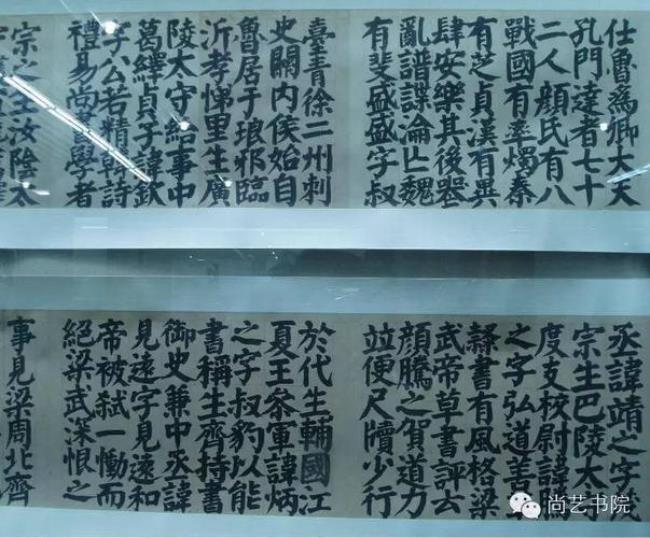 仕魯爲卿大夫
孔門達者七十
二人顏氏有八
戰國有率燭秦
有芝貞漢有異
肆安樂其後喪
亂譜諜淪亡魏
有斐盛盛字叔
臺青徐二州刺
史關内侯始自
魯居于琅邪臨
沂孝悌里生廣
陵太守給事中
葛繹貞子諱欽
字公若精韓詩
禮易尚書學者
宗之生汝陰太
丞諱靖之字茂
宗生巴陵太守
度支校尉諱騰
之字弘道善草
隸書有風格梁
武帝草書評云
顏騰之賀道力
並便尺牘少行
於代生輔國江
夏王參軍諱炳
之字叔豹以能
書稱生齊持書
御史兼中丞諱
見遠字見遠和
帝被弑一慟而
絕梁武深恨之
事見梁周北齊
尚艺书院